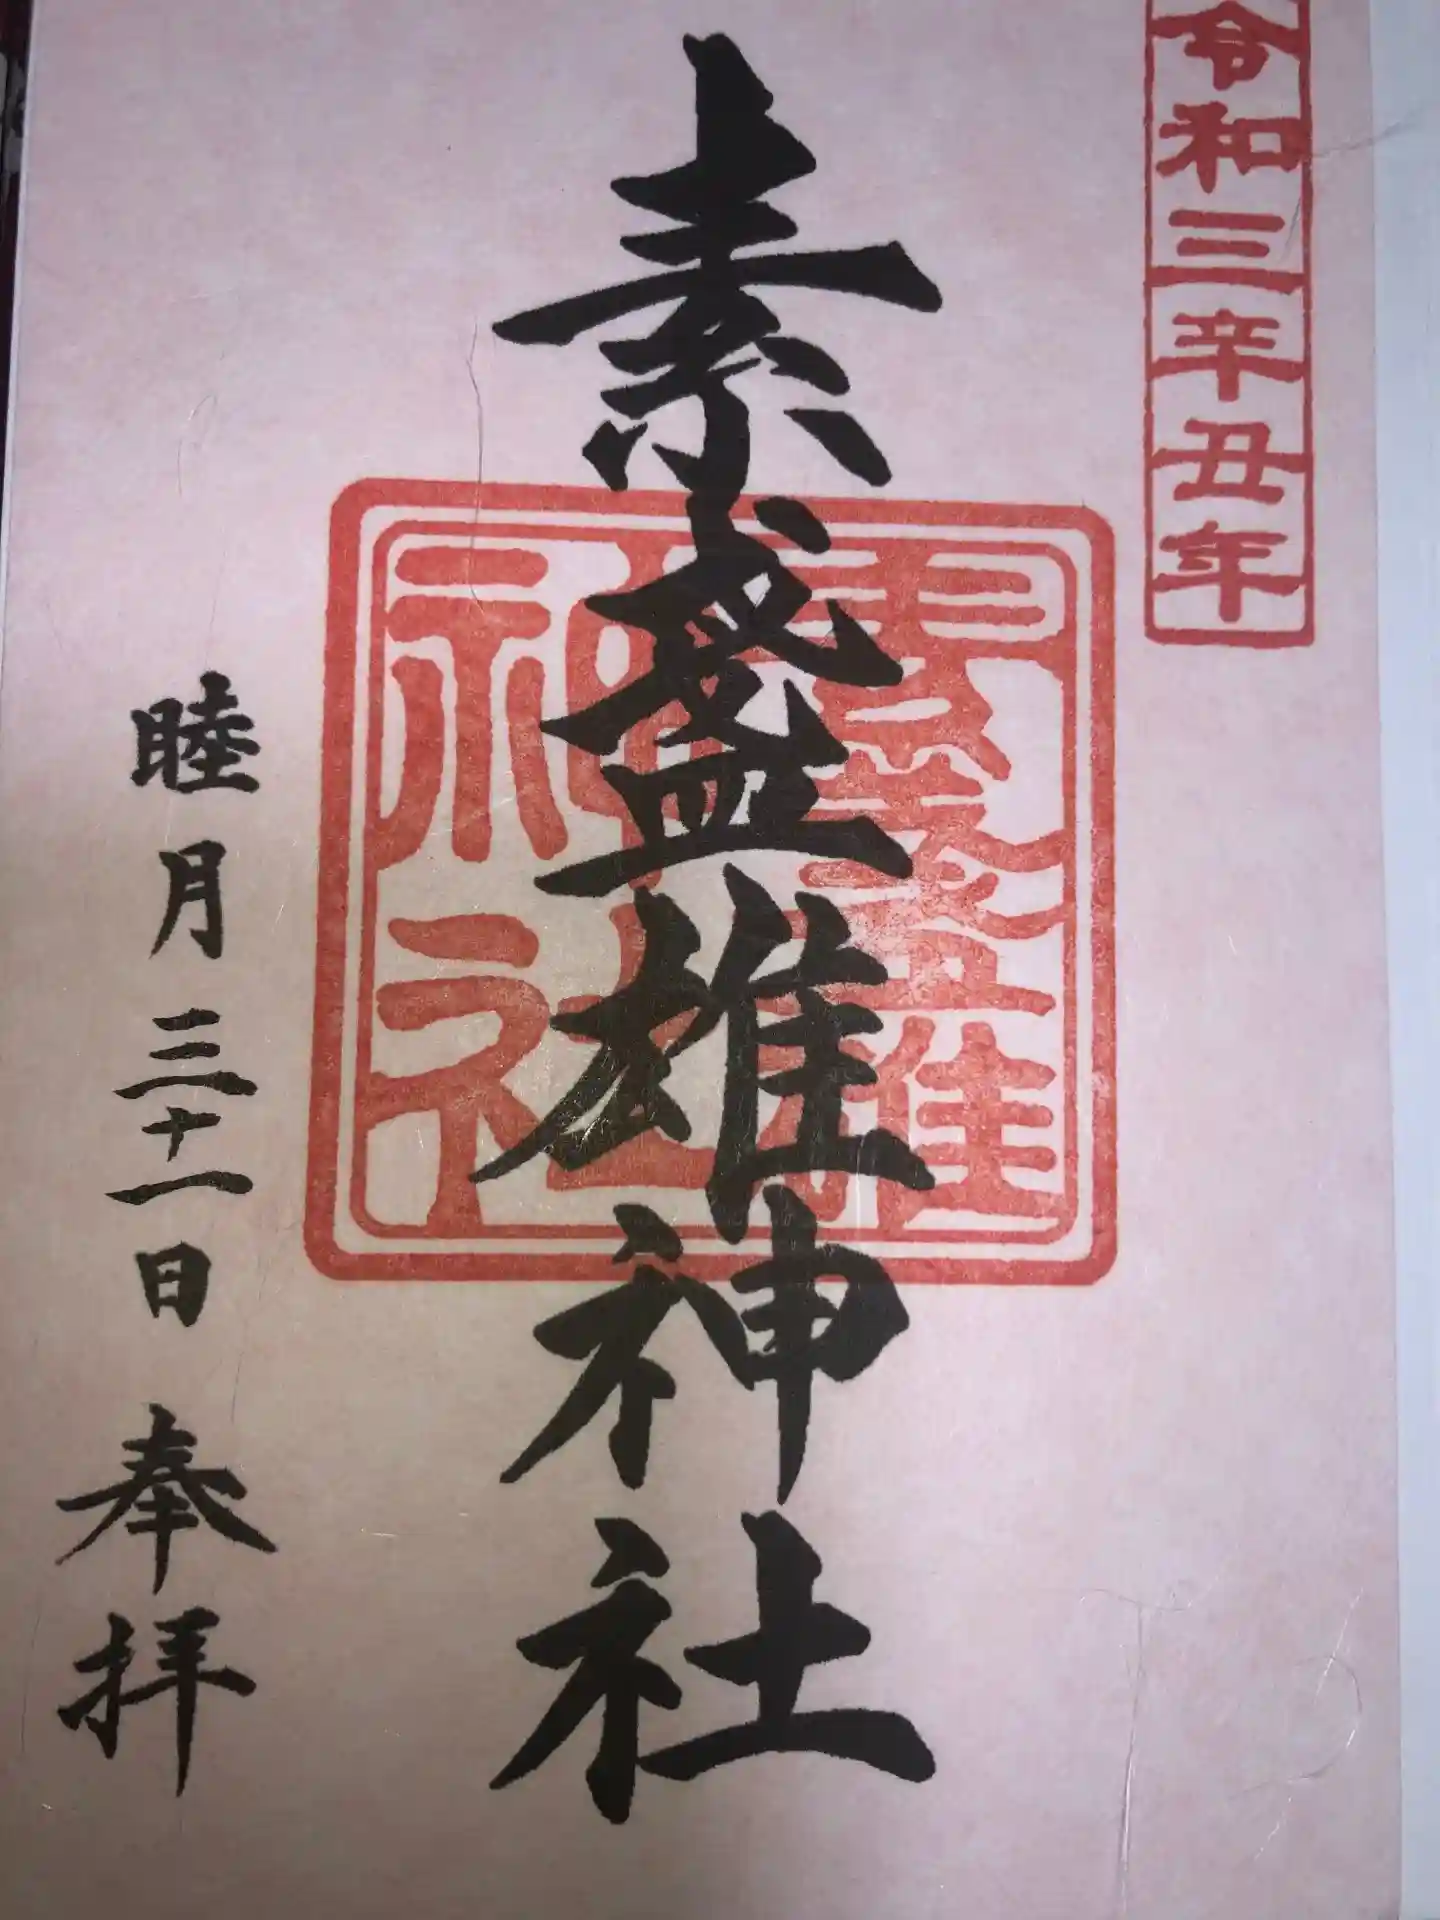 令和三辛丑年
素盞雄神社
素盞雄
神社
睦月三十一日 奉拝